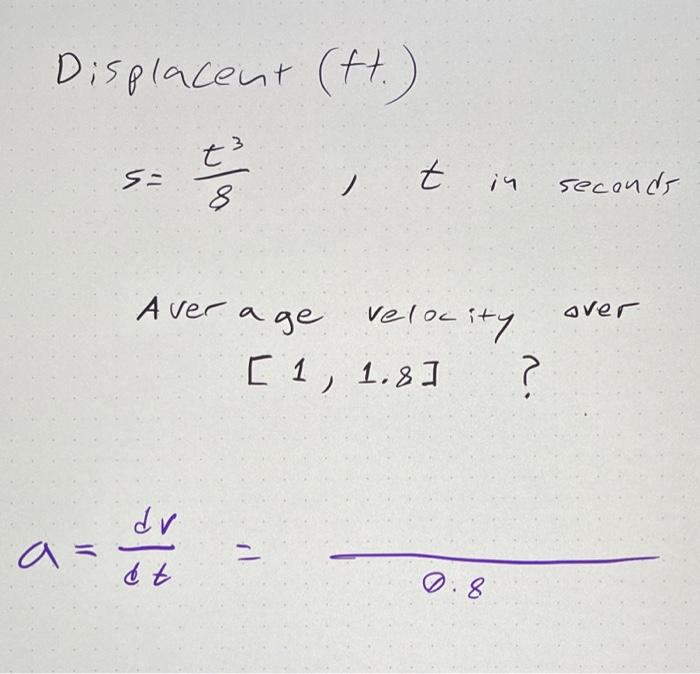 Displacent (ft.)
s = t³/8 , t in seconds
Average velocity over
[1, 1.8] ?
a = dv/dt = /0.8